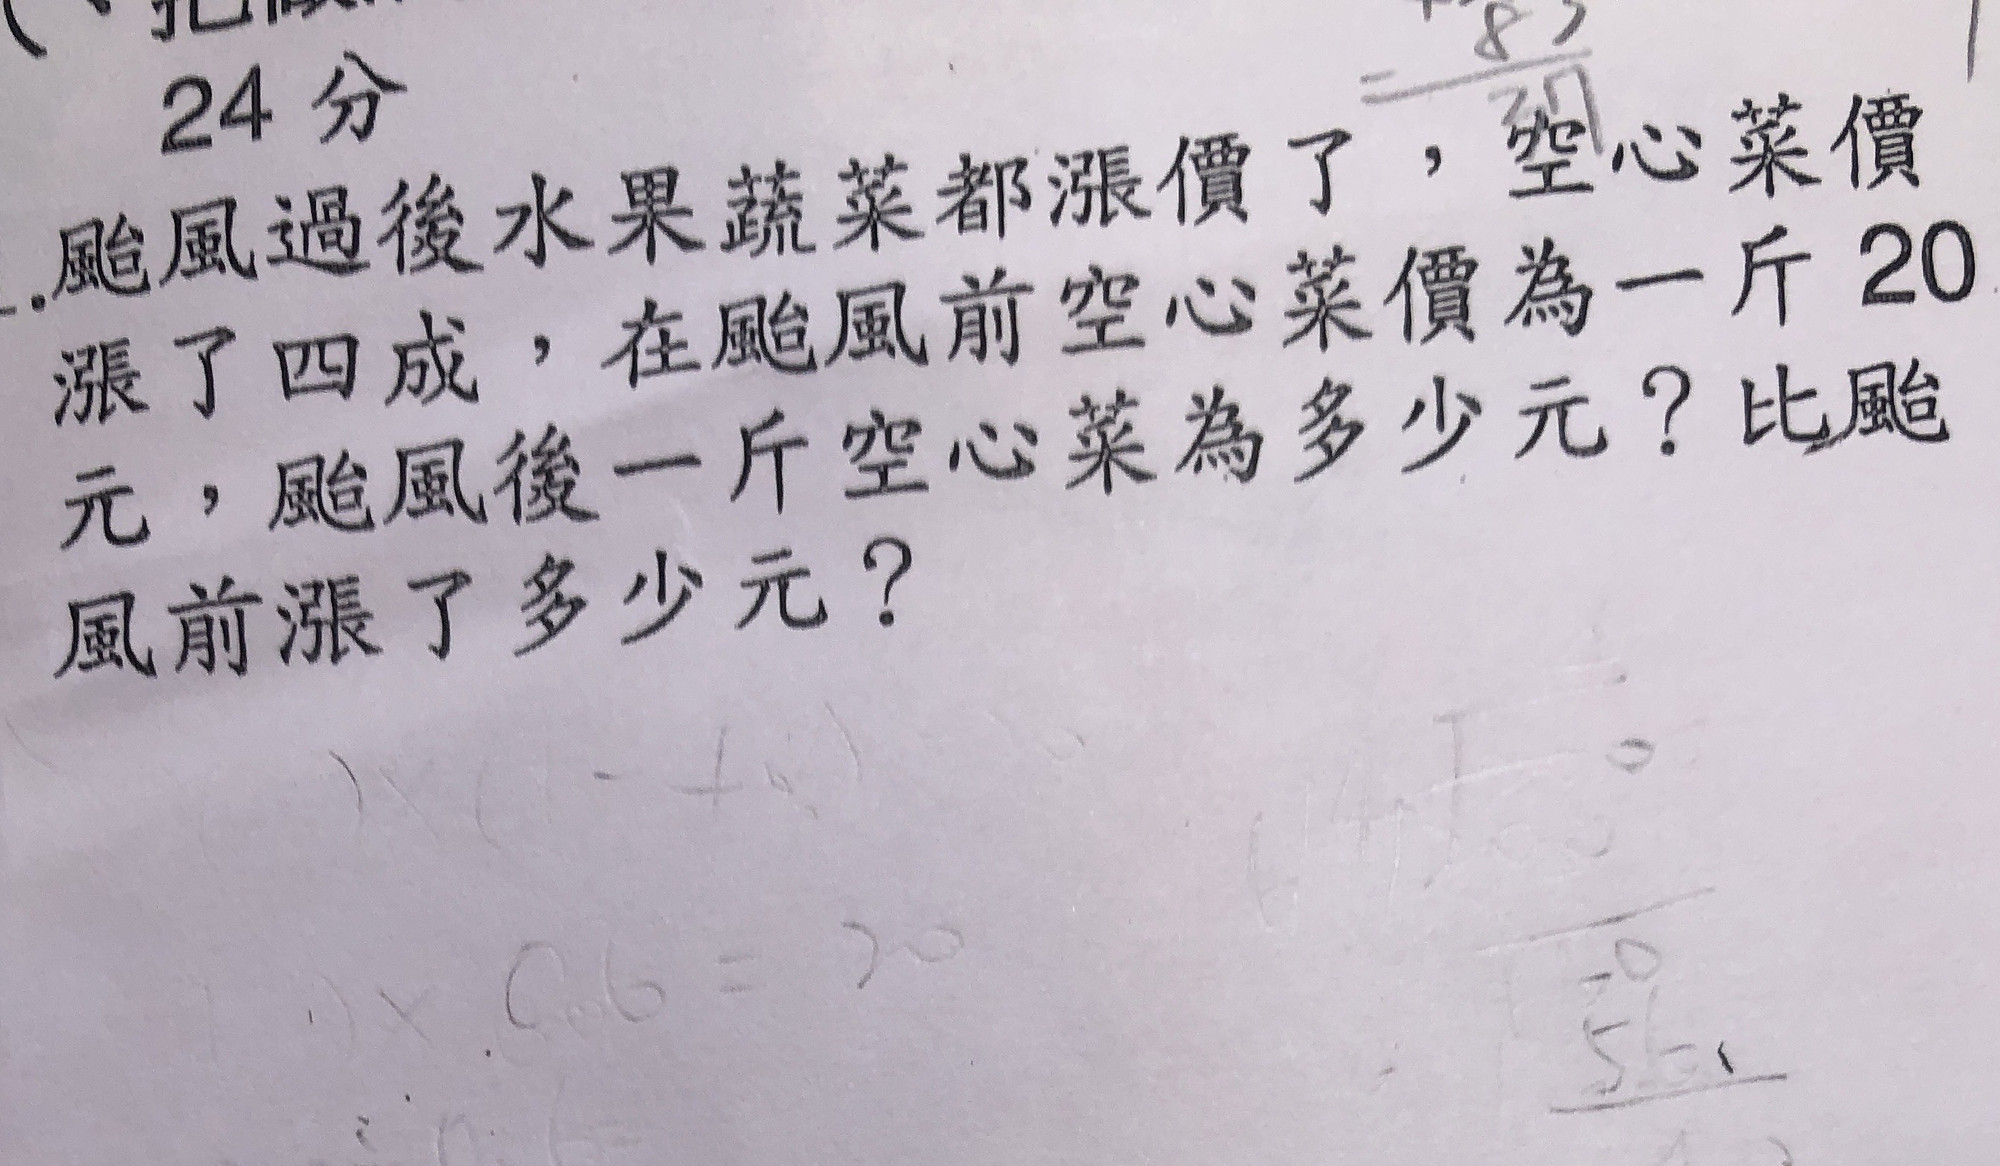 24 分
颱風過後水果蔬菜都漲價了，空心菜價
漲了四成，在颱風前空心菜價為一斤 20
元，颱風後一斤空心菜為多少元？比颱
風前漲了多少元？
× 0.6 = 20